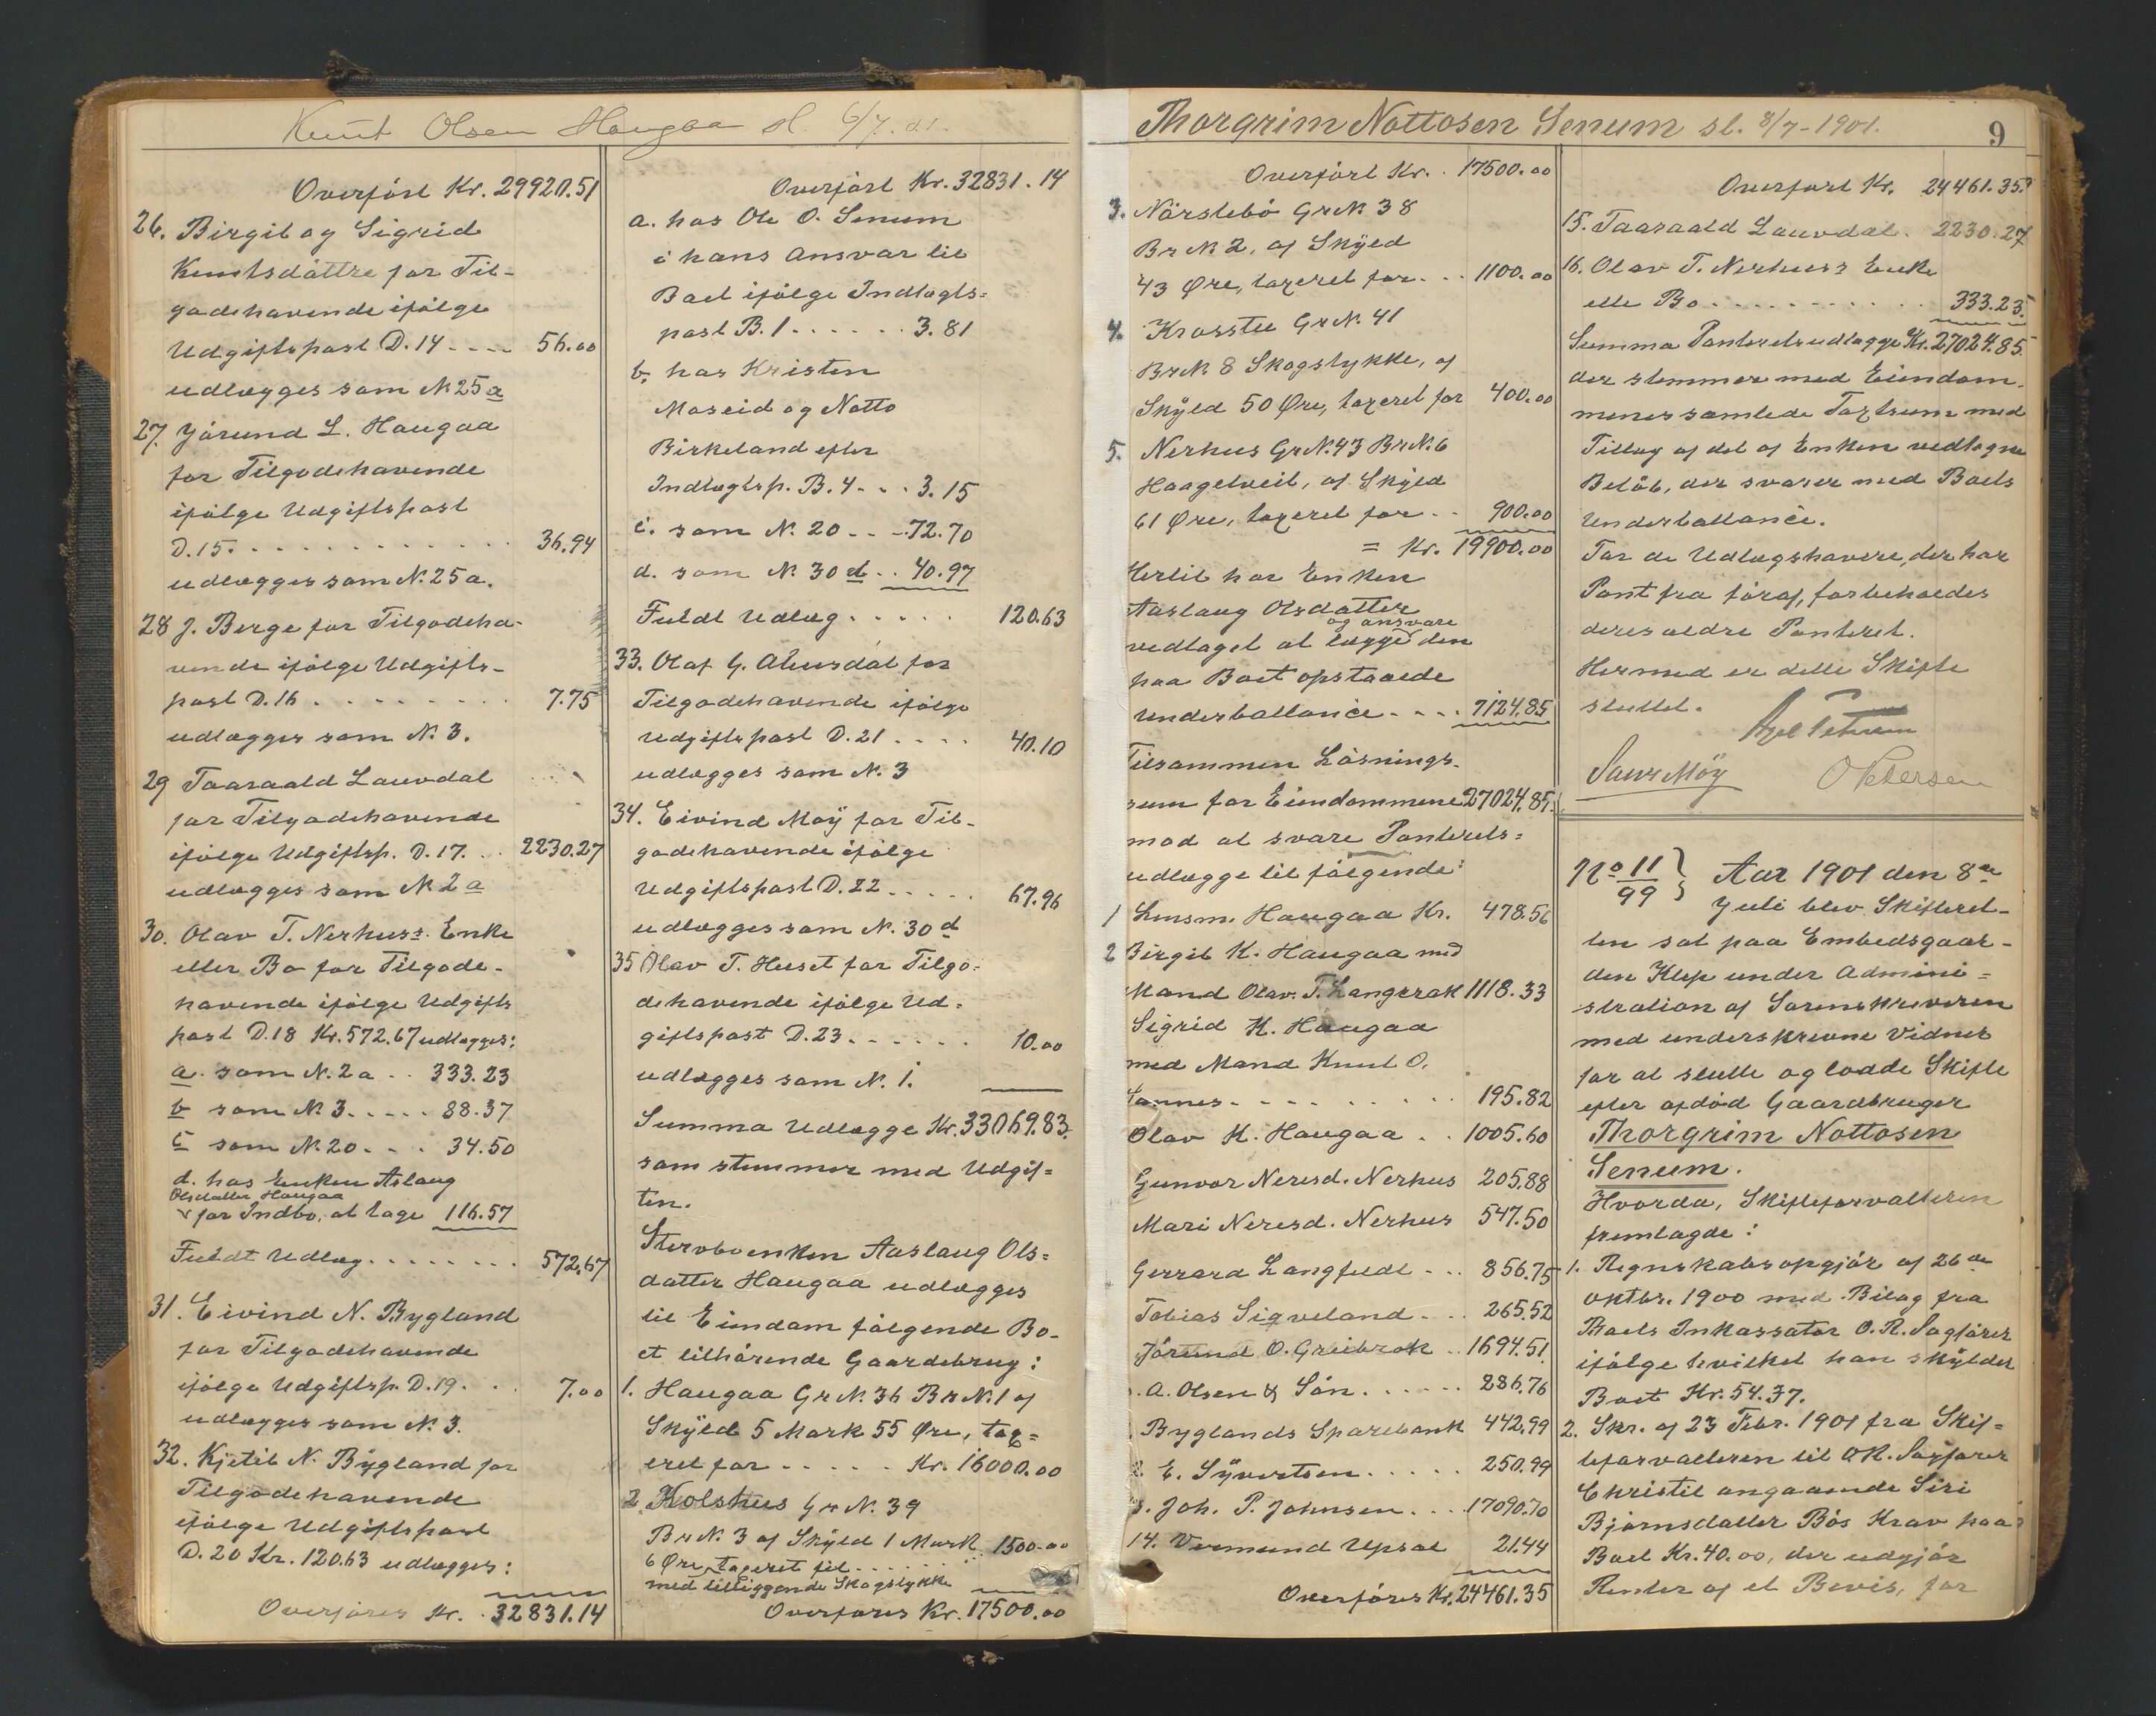 Knut Olsen Haugaa sl. 6/7.01.
Overført Kr. 29920.51
26. Birgit og Sigrid
Knutsdøttre for Til-
godehavende ifølge
Udgiftspost D.14 ---- 56.00
udlægges som N. 25 a
27. Jørund L. Haugaa
for Tilgodehavende
ifølge Udgiftspost
D.15. . . . . . . . . . . . 36.94
udlægges som N. 25a.
28 J. Berge for Tilgodeha-
vende ifølge Udgifts-
post D.16 . . . . . . . . . 7.75
udlægges som N. 3.
29 Taaraald Lauvdal
for Tilgodehavende
ifølge Udgiftsp. D.17. . . 2230.27
udlægges som N. 2 a
30. Olav T. Nerhus's Enke
eller Bo for Tilgode-
havende ifølge Udgifts
post D.18 Kr. 572.67 udlægges:
a. som N. 2a . . 333.23
b som N. 3. . . . . 88.37
c som N. 20 . . . 34.50
d. hos Enken Aslaug
Olsdatter Haugaa
for Indbo, at tage 116.57
Fuldt Udlæg. . . . . . . . 572.67
31. Eivind N. Bygland
for Tilgodehavende
ifølge Udgiftsp. D.19. . . 7.00
udlægges som N. 3.
32. Kjetil N. Bygland for
Tilgodehavende
ifølge Udgiftspost
D.20 Kr. 120.63 udlægges:
Overføres Kr. 32831.14
Overført Kr. 32831.14
a. hos Ole O. Senum
i hans Ansvar til
Boet ifølge Indtægts-
post B.1 . . . . . . 3.81
b. hos Kristen
Moseid og Notto
Birkeland efter
Indtægtsp. B.4 . . . 3.15
c. som N. 20 . . . 72.70
d. som N. 30 d . . 40.97
Fuldt Udlæg . . . . . 120.63
33. Olaf G. Aleusdal for
Tilgodehavende ifølge
Udgiftspost D.21 . . . . 40.10
udlægges som N. 3
34. Eivind Moÿ for Til-
godehavende ifølge
Udgiftspost D.22 . . . . . 67.96
udlægges som N. 30 d
35 Olav T. Huset for Tilgo-
dehavende ifølge Ud-
giftspost D.23 . . . . . . 10.00
udlægges som N. 1.
Summa Udlægge Kr. 33069.83.
som stemmer med Udgif-
ten.
Stervboenken Aaslaug Ols-
datter Haugaa udlægges
til Eiendom følgende Bo-
et tilhørende Gaardebrug:
1. Haugaa Gr N. 36 Br N. 1 af
Skÿld 5 Mark 55 Øre, tax-
eret for . . . . . Kr. 16000.00
2 Kolshus Gr N. 39
Br N. 3 af Skÿld 1 Mark 1500.00
6 Øre, taxeret til . . . . . .
med tilliggende Skogstykke
Overføres Kr. 17500.00
Thorgrim Nottosen Senum sl. 8/7-1901.
9
Overført Kr. . 17500.00
3. Nörstebö Gr N. 38
Br N. 2, af Skÿld
43 Øre, taxeret for . . . 1100.00
4. Krosstu Gr N. 41
Br N. 8 Skogstykke, af
Skÿld 50 Øre, taxeret for 400.00
5. Nerhus Gr N. 43 Br N. 6
Haagetveit, af Skyld
61 Øre, taxeret for . . 900.00
= Kr. 19900.00
Hertil har Enken
Aaslaug Olsdatter
og ansvare
vedtaget at lægge den
paa Boet opstaaede
Underballance . . . . 7124.85
Tilsammen Løsnings-
sum for Eiendommene 27024.85.
mod at svare Panterets-
udlægge til følgende:
1 Lensm. Haugaa Kr. 478.56
2 Birgit K. Haugaa med
Mand Olav T. Langerak 1118.33
Sigrid K. Haugaa
med Mand Knut O.
. . . . . . . . . 195.82
Olav K. Haugaa . . 1005.60
Gunvor Neresd. Nerhus 205.88
Mari Neresd. Nerhus 547.50
Gerrard Langfeldt . . . 856.75
Tobias Sigveland . . . 265.52
Jørund O. Greibrok . . 1694.51
A. Olsen & Søn . . . . . . 286.76
Byglands Sparebank 442.99
E. Syvertsen . . . . . 250.99
Joh. P. Johnsen . . . 17090.70
14. Vermund Upsal 21.44
Overføres Kr. 24461.35
Overført Kr. 24461.35.
15. Taaraald Lauvdal . 2230.27
16. Olav T. Nerhus's Enke
elle Bo . . . . . . . . . . 333.23.
Summa Panteretsudlægge Kr. 27024.85.
der stemmer med Eiendom-
menes samlede Taxtsum med
Tillæg af det af Enken vedtagne
Beløb, der svarer med Boets
Underballance.
For de Udlægshavere, der har
Pant fra føraf, forbeholdes
deres ældre Panteret.
Hermed er dette Skifte
sluttet.
Axel Petersen
Møÿ O Petersen
No 11/99 } Aar 1901 den 8de
Juli blev Skifteret-
ten sat paa Embedsgaar-
den Klep under Admini-
stration af Sorenskriveren
med underskrevne Vidner
for at slutte og lodde Skifte
efter afdød Gaardbruger
Thorgrim Nottosen
Senum.
Hvorda, Skifteforvalteren
fremlagde:
1. Regnskabsopgjør af 26de
Oktbr. 1900 med Bilag fra
Boets Inkassator O. R. Sagfører
ifølge hvilket han skÿlder
Boet Kr. 54.37.
2. Skr. af 23 Febr. 1901 fra Skif-
teforvalteren til OR. Sagfører
Christil angaaende Siri
Bjørnsdatter Bøs Krav paa
Boet Kr. 40.00, der udgjør
Renter af et Bevis, for